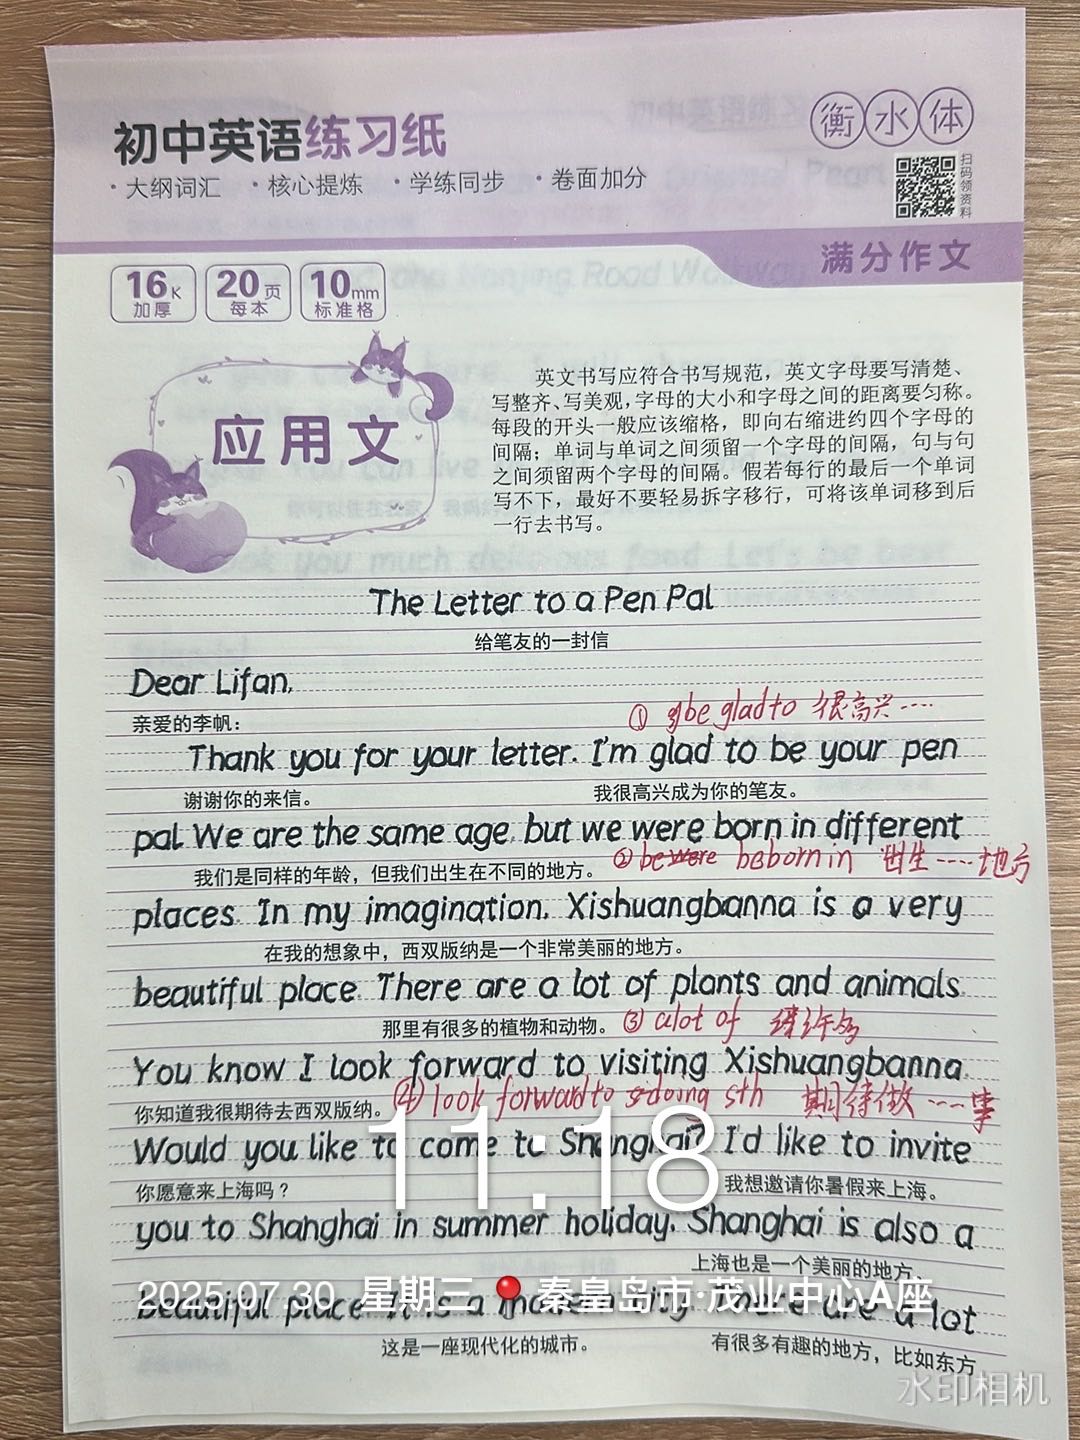 初中英语练习纸
·大纲词汇 ·核心提炼 ·学练同步 ·卷面加分
衡水体
扫码领资料
满分作文
16K 加厚
20页 每本
10mm 标准格
应用文
英文书写应符合书写规范，英文字母要写清楚、
写整齐、写美观，字母的大小和字母之间的距离要匀称。
每段的开头一般应该缩格，即向右缩进约四个字母的
间隔；单词与单词之间须留一个字母的间隔，句与句
之间须留两个字母的间隔。假若每行的最后一个单词
写不下，最好不要轻易拆字移行，可将该单词移到后
一行去书写。
The Letter to a Pen Pal
给笔友的一封信
Dear Lifan,
亲爱的李帆：
① be glad to 很高兴····
Thank you for your letter. I'm glad to be your pen
谢谢你的来信。 我很高兴成为你的笔友。
pal. We are the same age, but we were born in different
我们是同样的年龄，但我们出生在不同的地方。
② be born in 出生····地方
places. In my imagination, Xishuangbanna is a very
在我的想象中，西双版纳是一个非常美丽的地方。
beautiful place. There are a lot of plants and animals.
那里有很多的植物和动物。
③ a lot of 许多
You know I look forward to visiting Xishuangbanna.
你知道我很期待去西双版纳。
④ look forward to doing sth 期待做····事
Would you like to come to Shanghai? I'd like to invite
你愿意来上海吗？ 我想邀请你暑假来上海。
you to Shanghai in summer holiday. Shanghai is also a
上海也是一个美丽的地方、
beautiful place. It is a modern city. There are a lot
这是一座现代化的城市。 有很多有趣的地方，比如东方
11:18
2025.07.30 星期三 秦皇岛市·茂业中心A座
水印相机